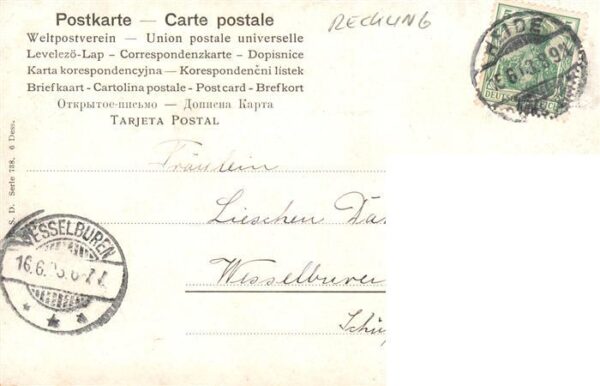 Postkarte — Carte postale
Weltpostverein — Union postale universelle
Levelező-Lap - Correspondenzkarte - Dopisnice
Karta korespondencyjna — Korespondenční lístek
Briefkaart - Cartolina postale - Postcard - Brefkort
Открытое-письмо — Дописна Карта
TARJETA POSTAL
RECHUNG
HEIDE
DEUTSCHES REICH
S. D. Serie 738. 6 Dess.
Fräulein
Lieschen
Wesselburen
WESSELBUREN
16.6.